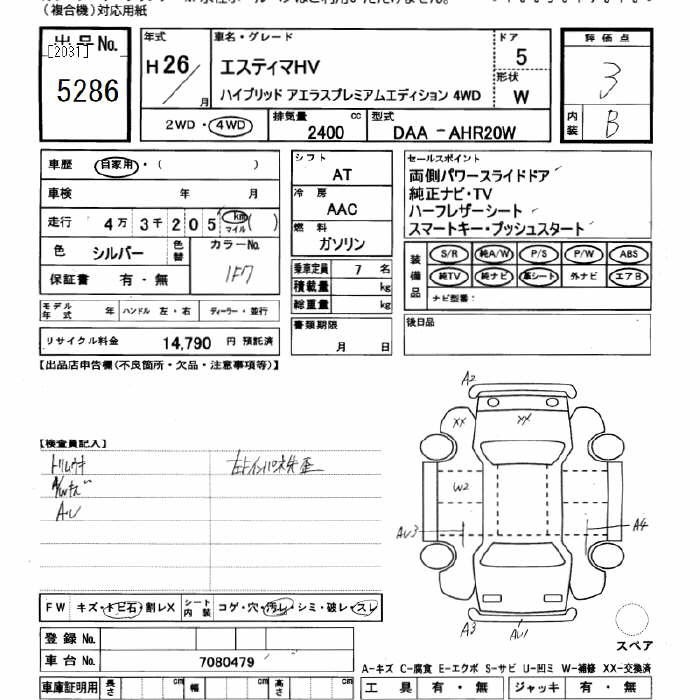 (複合機)対応用紙
出品No.
[2031]
5286
年式
H26
月
車名・グレード
エスティマHV
ハイブリッド アエラスプレミアムエディション 4WD
ドア
5
形状
W
評価点
3
内装
B
2WD・4WD
排気量
2400 cc
型式
DAA -AHR20W
車歴 自家用・( )
車検 年 月
走行 4万 3千 2 0 5 km マイル ( )
色 シルバー 色替 カラーNo. 1F7
保証書 有・無
モデル年式 年 ハンドル 左・右 ディーラー・並行
リサイクル料金 14,790 円 預託済
シフト
AT
冷房
AAC
燃料
ガソリン
乗車定員 7 名
積載量 kg
総重量 kg
書類期限
月 日
セールスポイント
両側パワースライドドア
純正ナビ・TV
ハーフレザーシート
スマートキー・プッシュスタート
装備品
S/R 純A/W P/S P/W ABS
純TV 純ナビ 革シート 外ナビ エアB
ナビ型番:
後日品
【出品店申告欄(不良箇所・欠品・注意事項等)】
【検査員記入】
A2
XX XX
W2
AU3
A4
A3
AU1
スペア
FW キズ・トビ石・割レX シート内装 コゲ・穴・汚レ・シミ・破レ・スレ
登録No.
車台No. 7080479
A-キズ C-腐食 E-エクボ S-サビ U-凹ミ W-補修 XX-交換済
車庫証明用 長さ cm 幅 cm 高さ cm
工具 有・無 ジャッキ 有・無